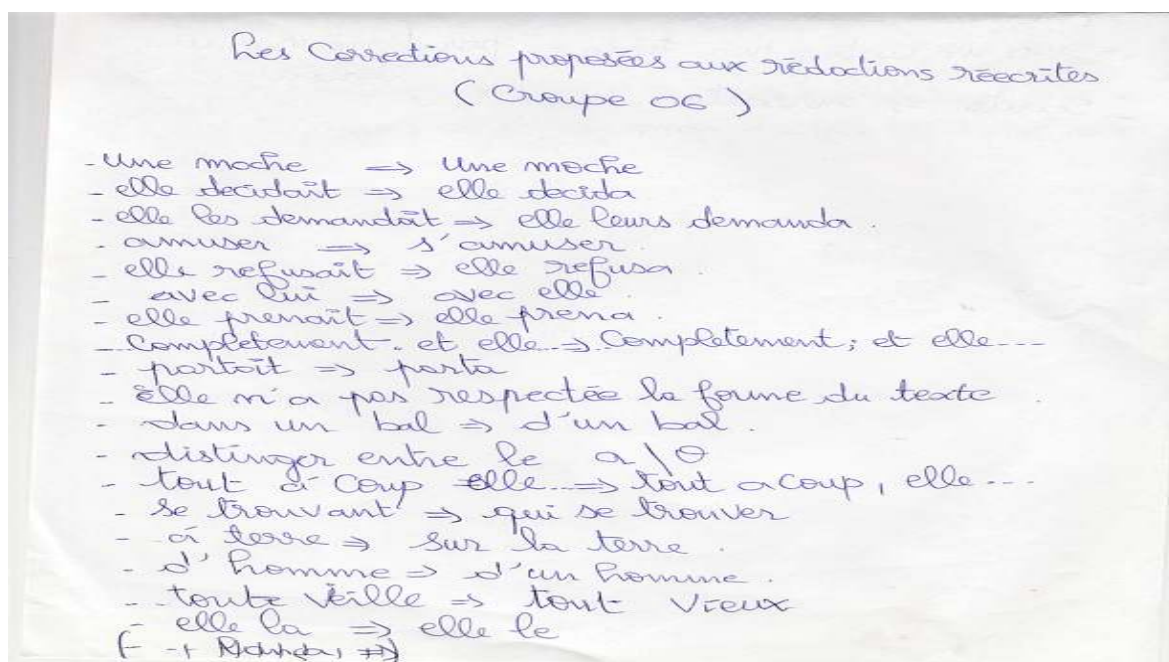 Les Corrections proposées aux rédactions réecrites
( Groupe 06 )
- Une moche => Une moche
- elle decidait => elle decida
- elle les demandait => elle leurs demanda.
- amuser => s'amuser.
- elle refusait => elle refusa.
- avec lui => avec elle.
- elle prenait => elle prena.
- Completement. et elle... => Completement; et elle...
- partait => parta
- Elle n'a pas respectée la forme du texte.
- dans un bal => d'un bal.
- distinger entre le a \ o
- tout à coup elle... => tout a coup, elle...
- se trouvant => qui se trouver
- à terre => sur la terre.
- d'homme => d'un homme.
- toute veille => tout vieux
- elle la => elle le